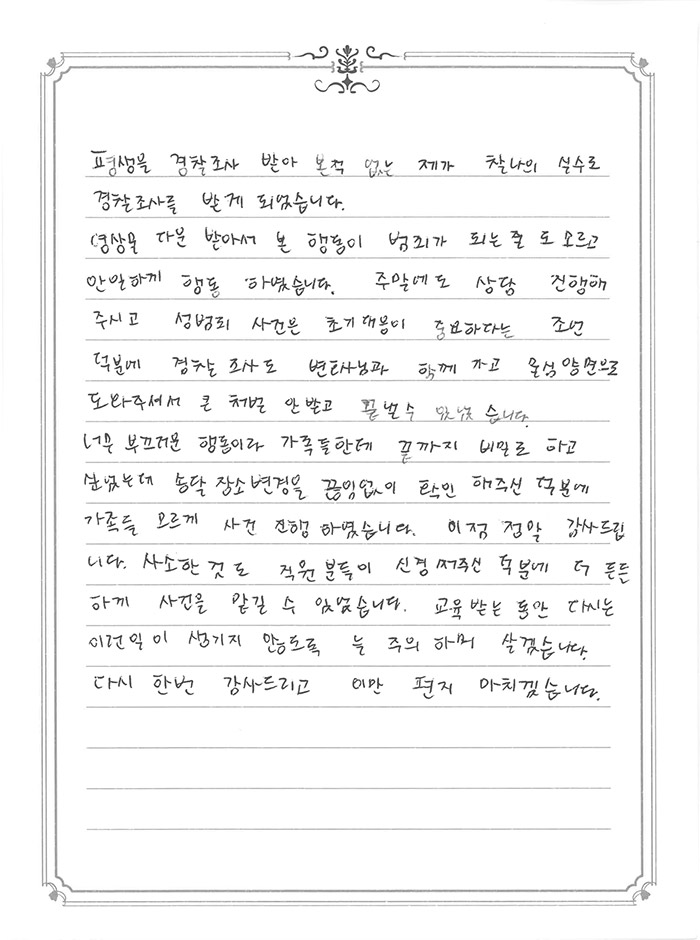 평생을 경찰조사 받아 본적 없는 제가 찰나의 실수로
경찰조사를 받게 되었습니다.
영상을 다운 받아서 본 행동이 범죄가 되는 줄 도 모르고
안일하게 행동 하였습니다. 주말에도 상담 진행해
주시고 성범죄 사건은 초기대응이 중요하다는 조언
덕분에 경찰 조사도 변호사님과 함께 가고 물심양면으로
도와주셔서 큰 처벌 안받고 끝낼수 있었 습니다.
너무 부끄러운 행동이라 가족들한데 끝까지 비밀로 하고
싶었는데 송달 장소변경을 끊임없이 확인 해주신 덕분에
가족들 모르게 사건 진행 하였습니다. 이점 정말 감사드립
니다. 사소한 것도 직원분들이 신경써주신 덕분에 더 든든
하게 사건을 맡길 수 있었습니다. 교육 받는 동안 다시는
이런일이 생기지 않도록 늘 주의 하며 살겠습니다.
다시 한번 감사드리고 이만 편지 마치겠습니다.